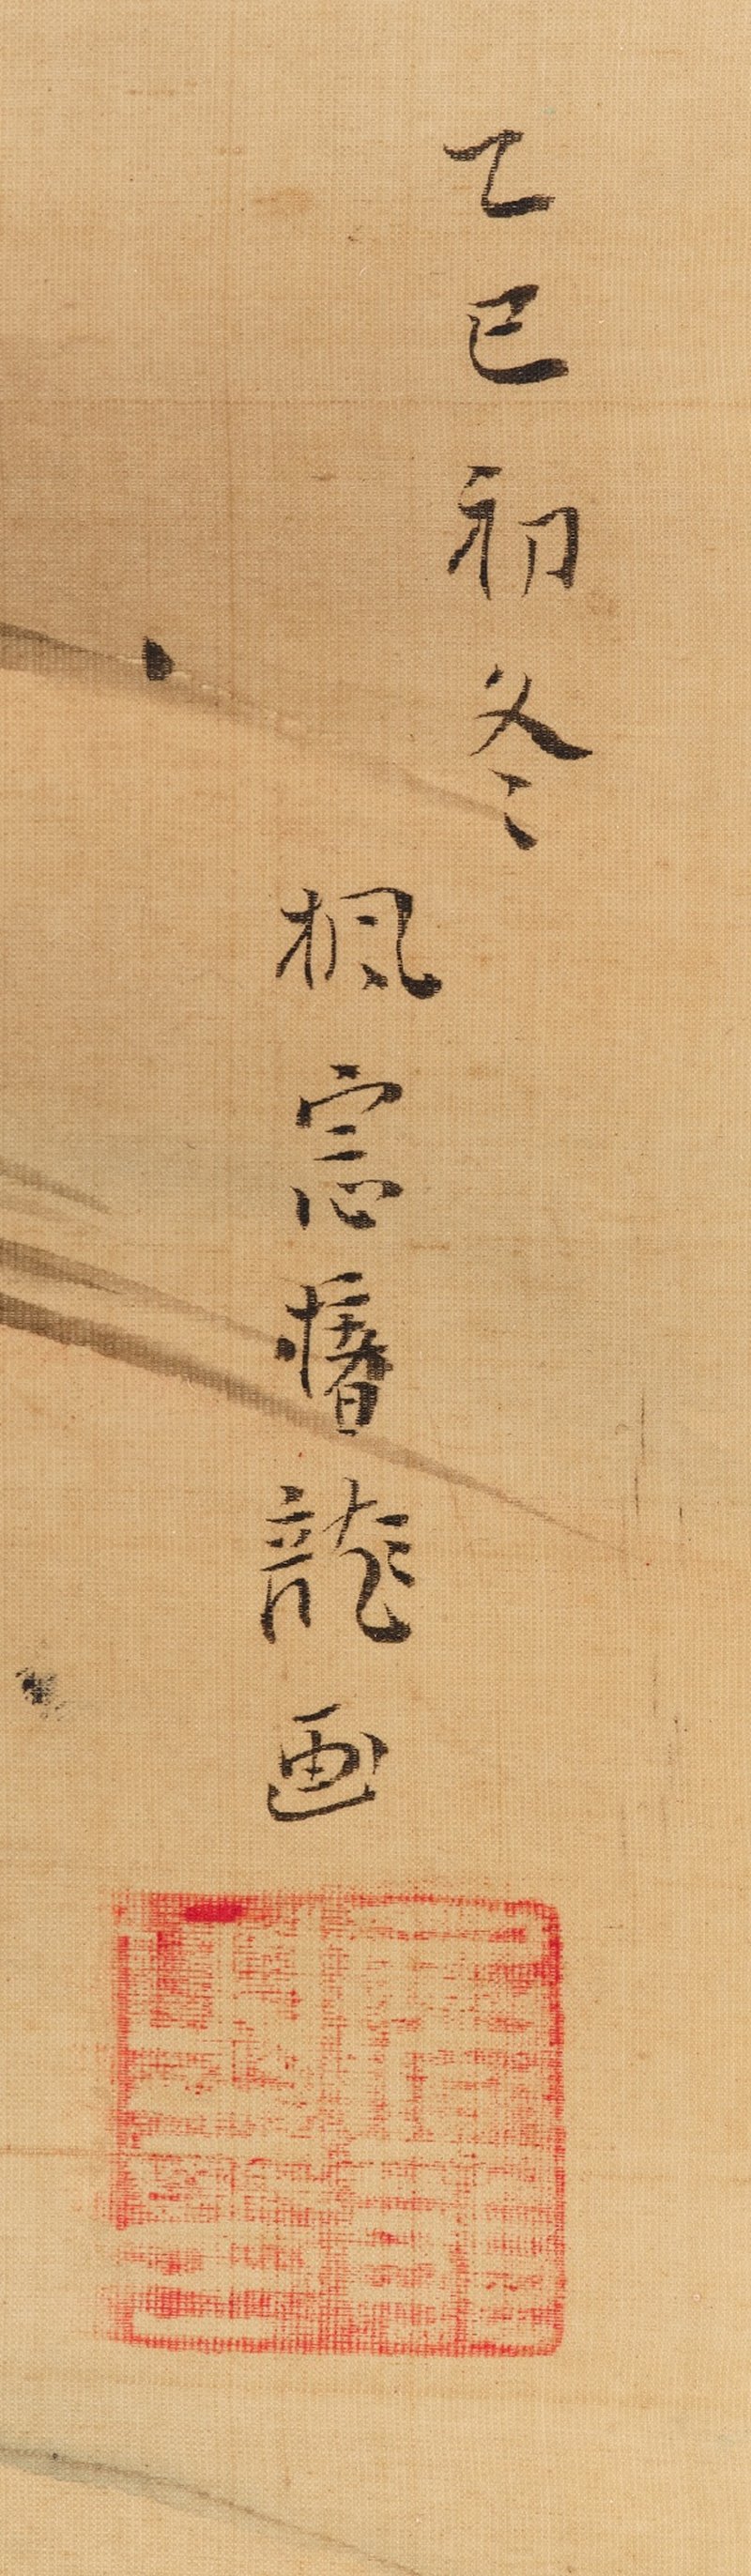 乙巳初冬
楓窓播龍画